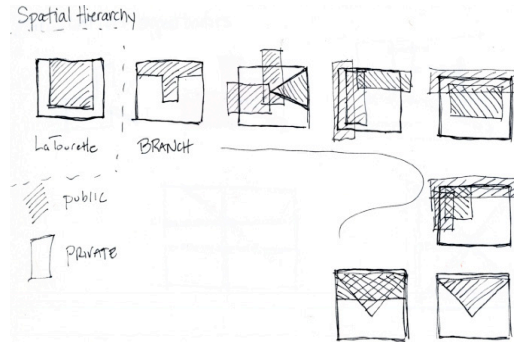 Spatial Hierarchy
LaTourette
BRANCH
public
PRIVATE